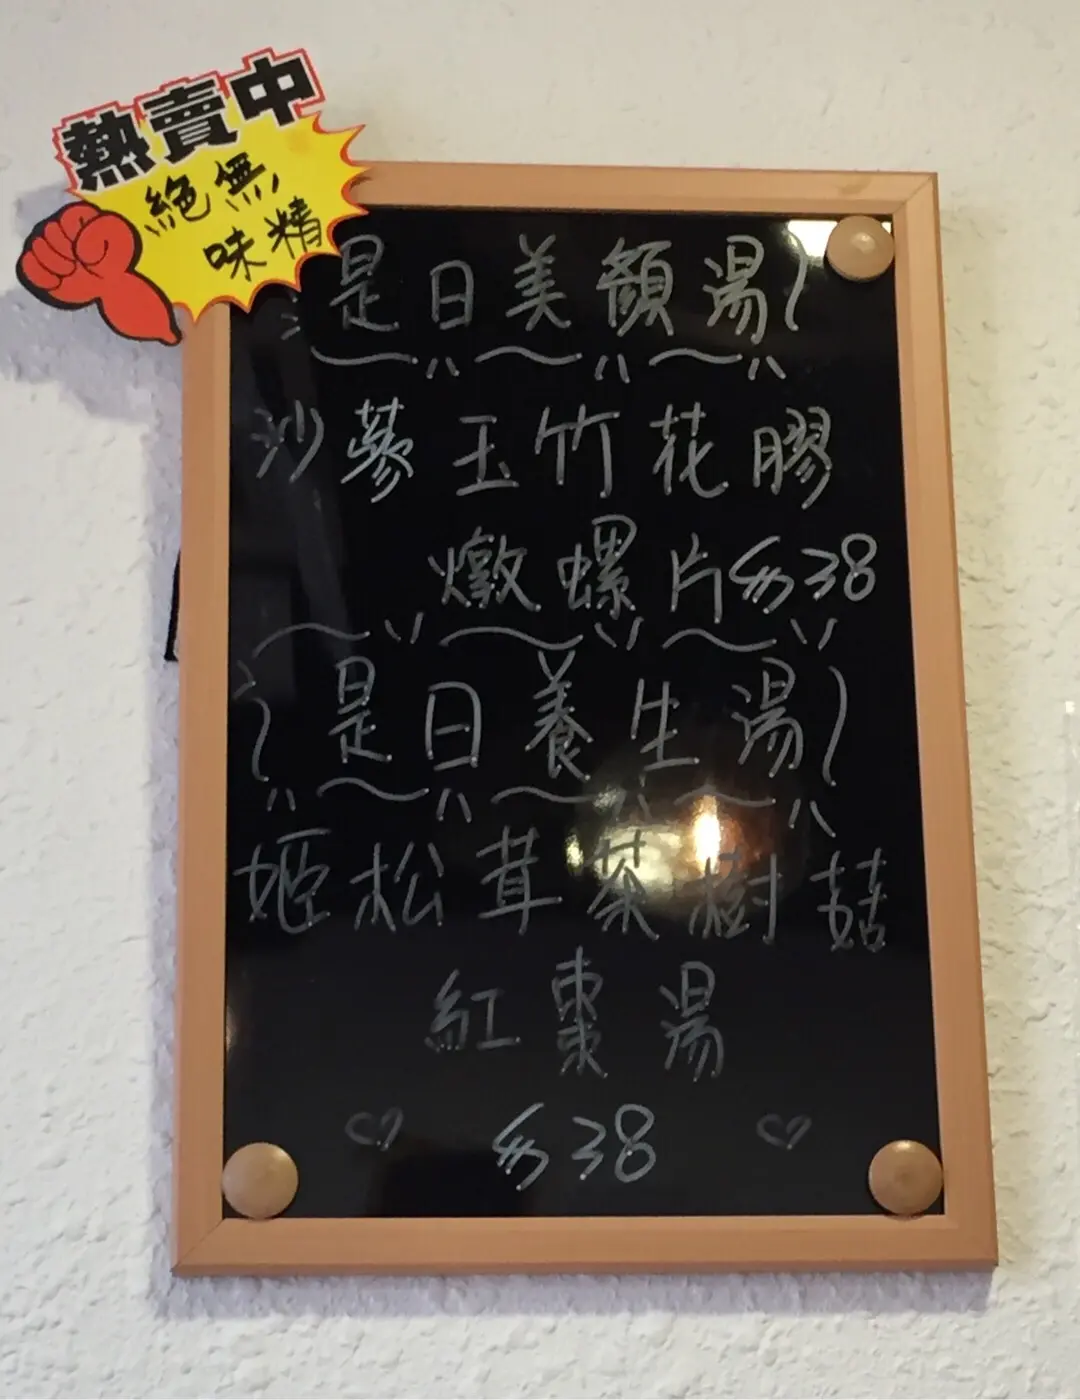 熱賣中
絕無
味精
是日美顏湯
沙蔘玉竹花膠
燉螺片$38
是日養生湯
姬松茸茶樹菇
紅棗湯
$38